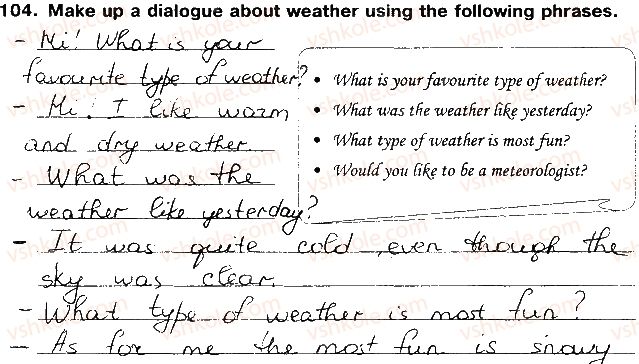 104. Make up a dialogue about weather using the following phrases.
- Hi! What is your
favourite type of weather?
- Hi! I like warm
and dry weather
- What was the
weather like yesterday?
• What is your favourite type of weather?
• What was the weather like yesterday?
• What type of weather is most fun?
• Would you like to be a meteorologist?
- It was quite cold, even though the
sky was clear.
- What type of weather is most fun?
- As for me the most fun is snowy